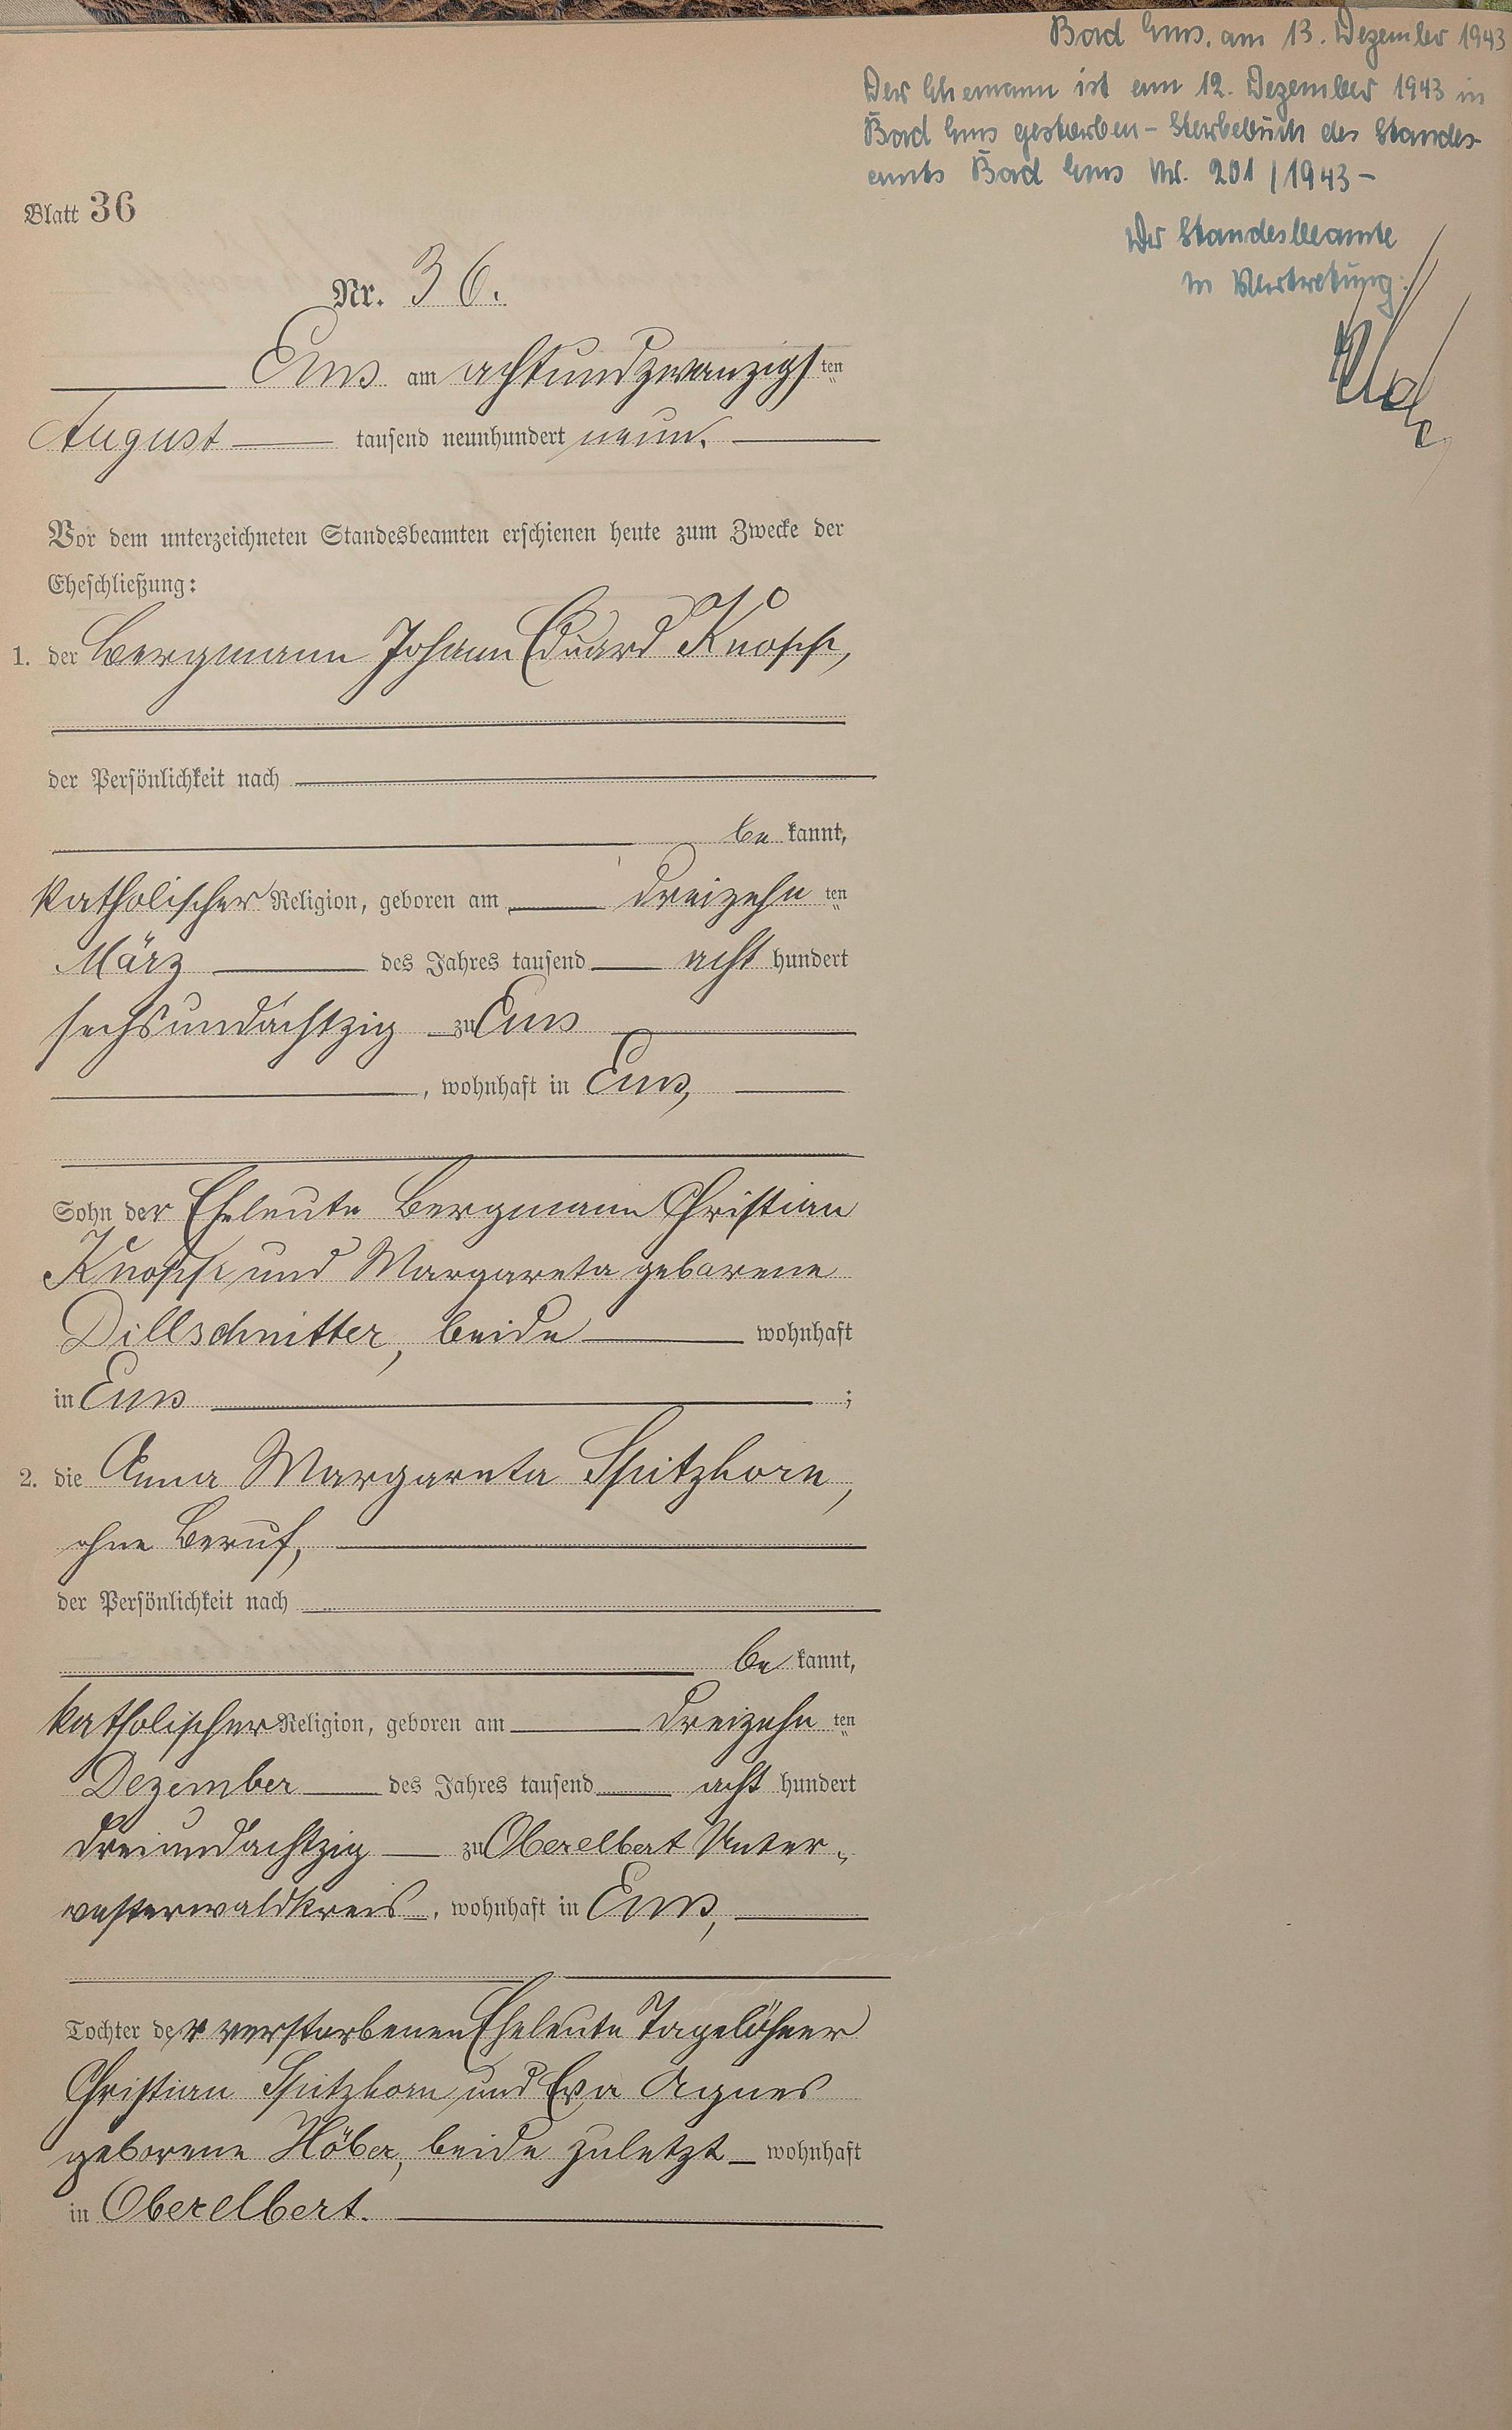 Bad Ems, am 13. Dezember 1943
Der Ehemann ist am 12. Dezember 1943 in
Bad Ems gestorben – Sterbebuch des Standes-
amts Bad Ems Nr. 201/1943 –
Der Standesbeamte
In Vertretung:
Blatt 36
Nr. 36.
Ems am achtundzwanzigsten
August tausend neunhundert neun.
Vor dem unterzeichneten Standesbeamten erschienen heute zum Zwecke der
Eheschließung:
1. der Bergmann Johann Eduard Knopp,
der Persönlichkeit nach
be kannt,
katholischer Religion, geboren am dreizehn ten
März des Jahres tausend acht hundert
sechsundachtzig zu Ems
, wohnhaft in Ems,
Sohn der Eheleute Bergmann Christian
Knopp und Margareta geborene
Dillschnitter, beide wohnhaft
in Ems ;
2. die Anna Margareta Spitzhorn,
ohne Beruf,
der Persönlichkeit nach
be kannt,
katholischer Religion, geboren am dreizehn ten
Dezember des Jahres tausend acht hundert
dreiundachtzig zu Oberelbert Unter-
westerwaldkreis, wohnhaft in Ems,
Tochter der verstorbenen Eheleute Tagelöhner
Christian Spitzhorn und Eva Agnes
geborene Höber, beide zuletzt wohnhaft
in Oberelbert.